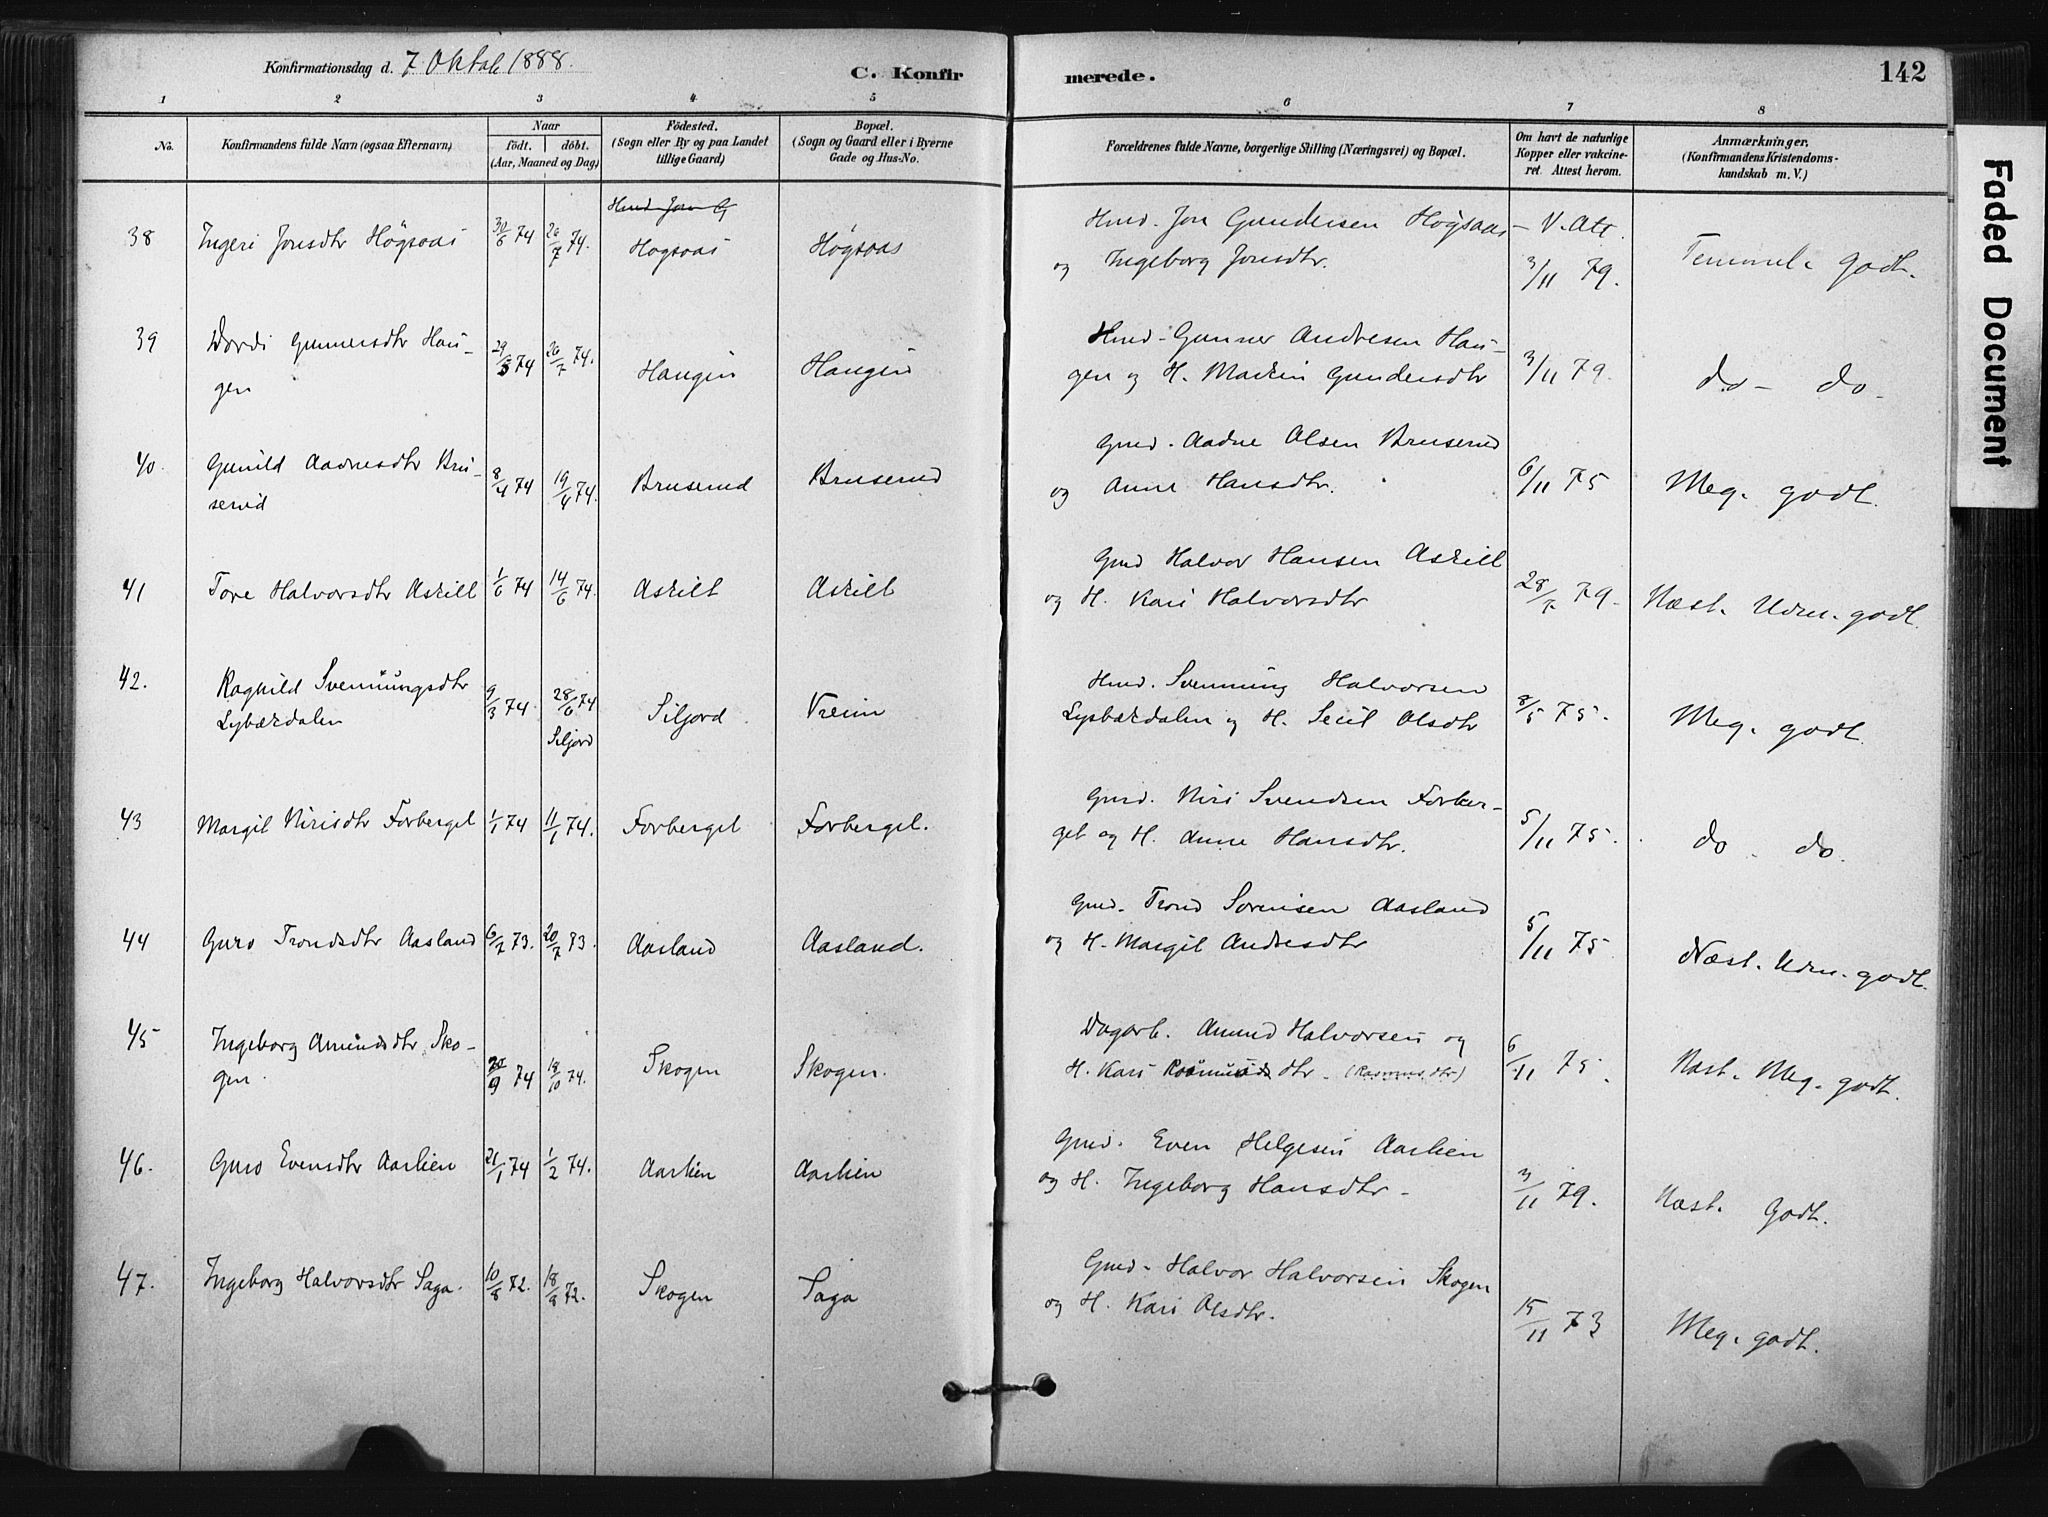 Konfirmationsdag d. 7 Oktob 1888.
C. Konfirmerede.
142
1 2 3 4 5 6 7 8
No.
Konfirmandens fulde Navn (ogsaa Efternavn)
Naar
födt. döbt.
(Aar, Maaned og Dag)
Födested.
(Sogn eller By og paa Landet
tillige Gaard)
Bopæl.
(Sogn og Gaard eller i Byerne
Gade og Hus-No.
Forældrenes fulde Navne, borgerlige Stilling (Næringsvei) og Bopæl.
Om havt de naturlige
Kopper eller vakcine-
ret. Attest herom.
Anmærkninger.
(Konfirmandens Kristendoms-
kundskab m. V.)
Faded Document
Hmd Jon G
38 Ingeri Jonsdtr Högsaas 30/6 74 26/7 74. Hogsaas Högsaas
Hmd. Jon Gundersen Högsaas - V. Att.
og Ingeborg Jonsdtr. 3/11 79. godt.
39 Dordi Gunnersdtr Hau-
gen 29/5 74 26/7 74. Haugen Haugen
Hmd. Gunner Andresen Hau-
gen og H. Markin Gundersdtr 3/11 79. do - do -
40. Gunild Aadnesdtr Bru-
serud 8/4 74 19/4 74. Bruserud Bruserud
Gmd. Aadne Olsen Bruserud
og Anne Hansdtr. 6/11 75 Meg. godt.
41 Tore Halvorsdtr Askilt 1/6 74 14/6 74. Askilt Askilt
Gmd Halvor Hansen Askilt
og H. Kari Halvorsdtr 28/7 79. Næst. Udm. godt.
42. Ragnild Svennungsdtr
Lybærdalen 9/3 74. 28/6 74 Siljord Siljord Vreim
Hmd. Svennung Halvorsen
Lysbærdalen og H. Sicil Olsdtr 8/5 75. Meg. godt.
43 Margit Nirisdtr Forberget 1/1 74 11/1 74. Forberget Forberget.
Gmd. Niri Svendsen Forber-
get og H. Anne Hansdtr. 5/11 75. do. do.
44 Guro Trondsdtr Aasland 6/7 73. 20/7 73. Aasland Aasland.
Gmd. Trond Sorensen Aasland
og H. Margit Andresdtr 5/11 75 Næst. Udm. godt.
45 Ingeborg Amundsdtr Sko-
gen. 20/9 74 18/10 74. Skogen Skogen.
Dagarb. Amund Halvorsen og
H. Kari Rasmusdtr. (Rasmusdtr) 6/11 75. Næst. Meg. godt.
46. Guro Evensdtr Aaslien 21/1 74 1/2 74. Aaslien Aaslien
Gmd. Even Helgesen Aaslien
og H. Ingeborg Hansdtr - 3/11 79. Næst. Godt.
47. Ingeborg Halvorsdtr Saga. 10/8 72. 18/8 72. Skogen Saga
Gmd - Halvor Halvorsen Skogen
og H. Kari Olsdtr. 15/11 73 Meg. godt.